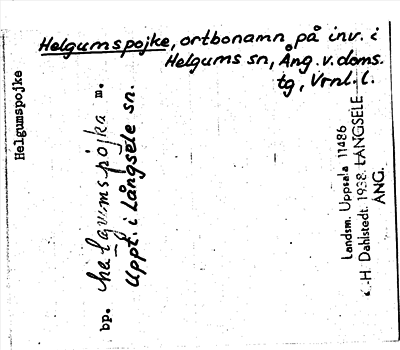 Helgumspojke, ortbonamn på inv. i
Helgums sn, Ång. v. doms.
tg, Vrnl. l.
Helgumspojke
bp. hælgumspojka m.
Uppt. i Långsele sn.
Landsm. Uppsala 11486
K.-H. Dahlstedt. 1938. LÅNGSELE
ÅNG.